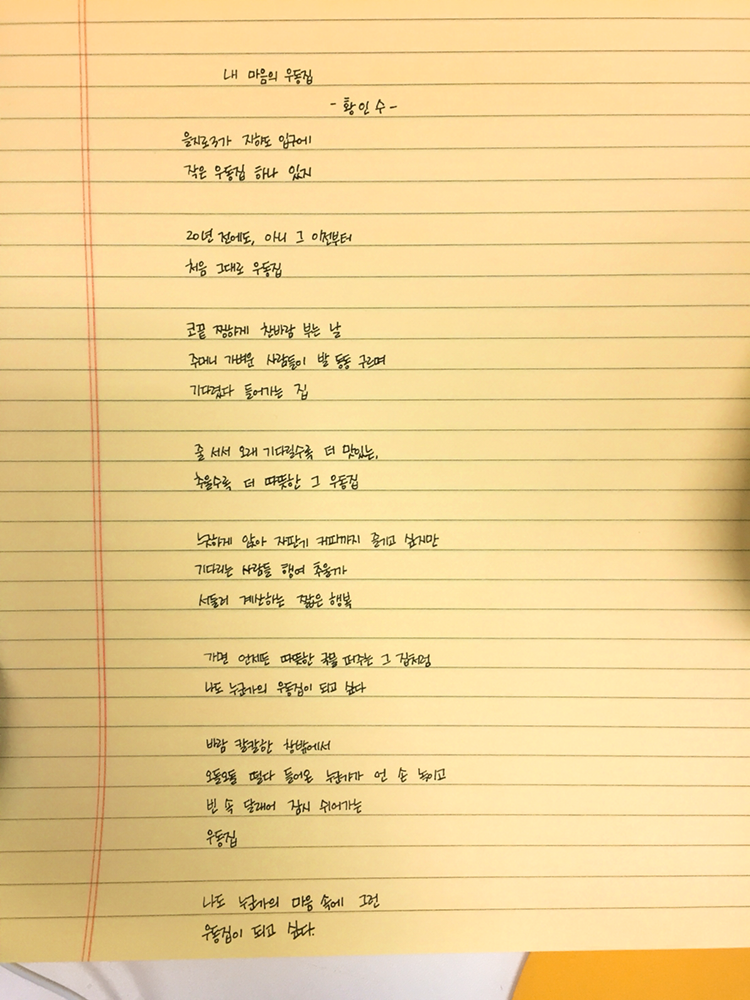 내 마음의 우동집
- 황인수 -
을지로3가 지하도 입구에
작은 우동집 하나 있지
20년 전에도, 아니 그 이전부터
처음 그대로 우동집
코끝 찡하게 찬바람 부는 날
주머니 가벼운 사람들이 발 동동 구르며
기다렸다 들어가는 집
줄 서서 오래 기다릴수록 더 맛있는,
추울수록 더 따뜻한 그 우동집
느긋하게 앉아 자판기 커피까지 즐기고 싶지만
기다리는 사람들 행여 추울까
서둘러 계산하는 짧은 행복
가면 언제든 따뜻한 국물 떠주는 그 집처럼
나도 누군가의 우동집이 되고 싶다
바람 칼칼한 창밖에서
오돌오돌 떨다 들어온 누군가가 언 손 녹이고
빈 속 달래어 잠시 쉬어가는
우동집
나도 누군가의 마음 속에 그런
우동집이 되고 싶다.